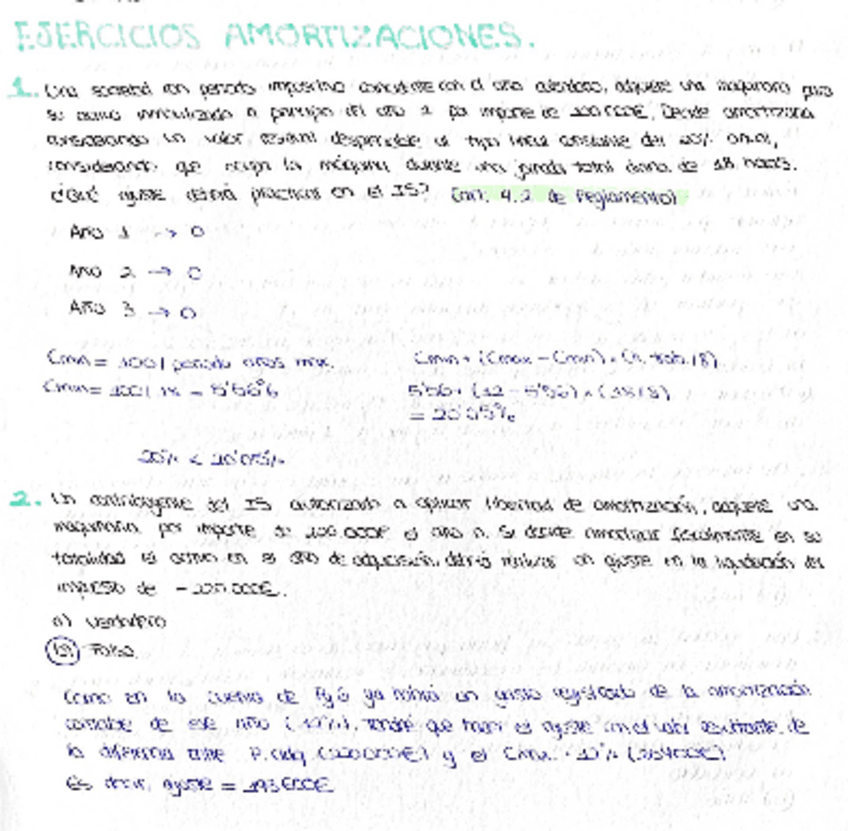 EJERCICIOS AMORTIZACIONES.
1. Una sociedad con periodo impositivo coincidente con el año calendario, adquiere una maquinaria para
su activo inmovilizado a principio del año 1 por importe de 200.000€. Decide amortizarla
considerando un valor residual despreciable al tipo lineal constante del 20% anual,
considerando que ocupa la máquina durante una jornada total diaria de 18 horas.
¿Qué ajuste deberá practicar en el IS? (art. 4.2 de Reglamento)
Año 1 → 0
Año 2 → 0
Año 3 → 0
Cmin = 100 / periodo años max.
Cmin + (Cmax - Cmin) × (h. trab. / 8)
Cmin = 100 / 18 = 5'56%
5'56 + (12 - 5'56) × (18/8)
= 20'05%
20% < 20'05%
2. Un contribuyente del IS autorizado a aplicar libertad de amortización, adquiere una
maquinaria por importe de 220.000€ el año n. Si decide amortizar fiscalmente en su
totalidad el activo en el año de adquisición, deberá realizar un ajuste en la liquidación del
impuesto de -220.000€.
a) Verdadero
b) Falso.
Como en la cuenta de PyG ya habrá un gasto registrado de la amortización
contable de ese año (12%), tendré que hacer el ajuste con el valor resultante de
la diferencia entre P. adq. (220.000€) y el Cmax. 12% (26.400€)
Es decir, ajuste = 193.600€